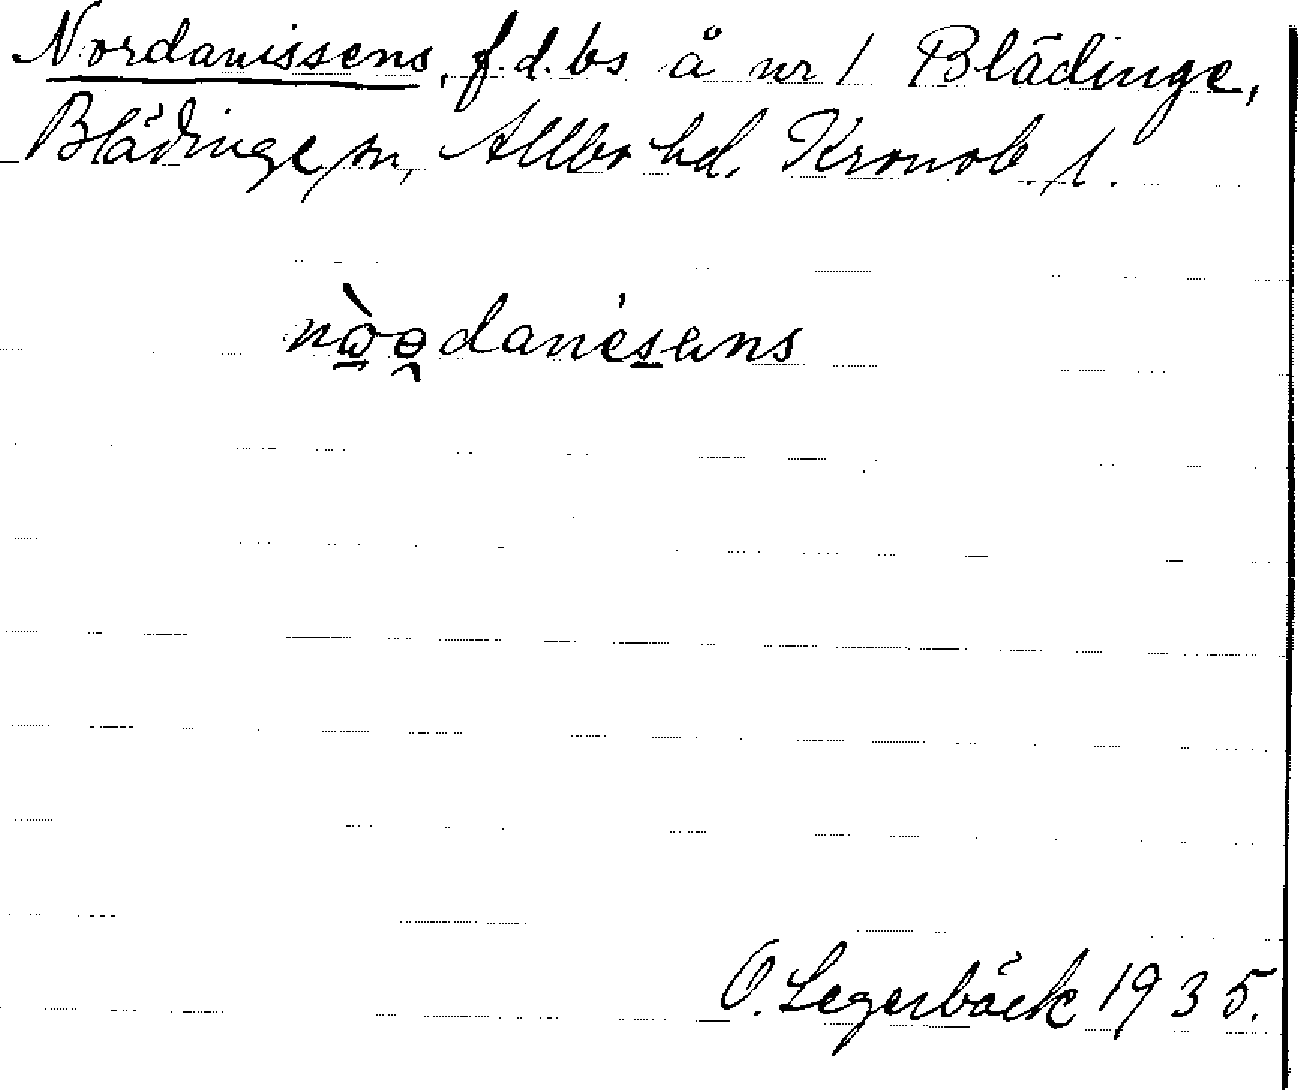 Nordanissens, f.d. bs å nr 1 Blädinge,
Blädinge sn, Allbo hd. Kronob l.
O. Legerbäck 1935.